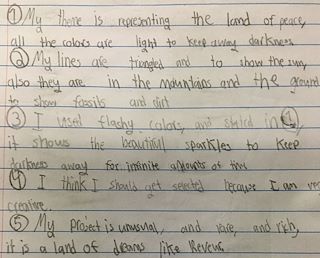 ① My theme is representing the land of peace,
all the colors are light to keep away darkness
② My lines are triangled and to show the sun,
also they are in the mountains and the ground
to show fossils and dirt
③ I used flashy colors, and in
it shows the beautiful sparkles to keep
darkness away for infinite amounts of time
④ I think I should get selected because I am very
creative.
⑤ My project is unusual, and rare, and rich,
it is a land of dreams like